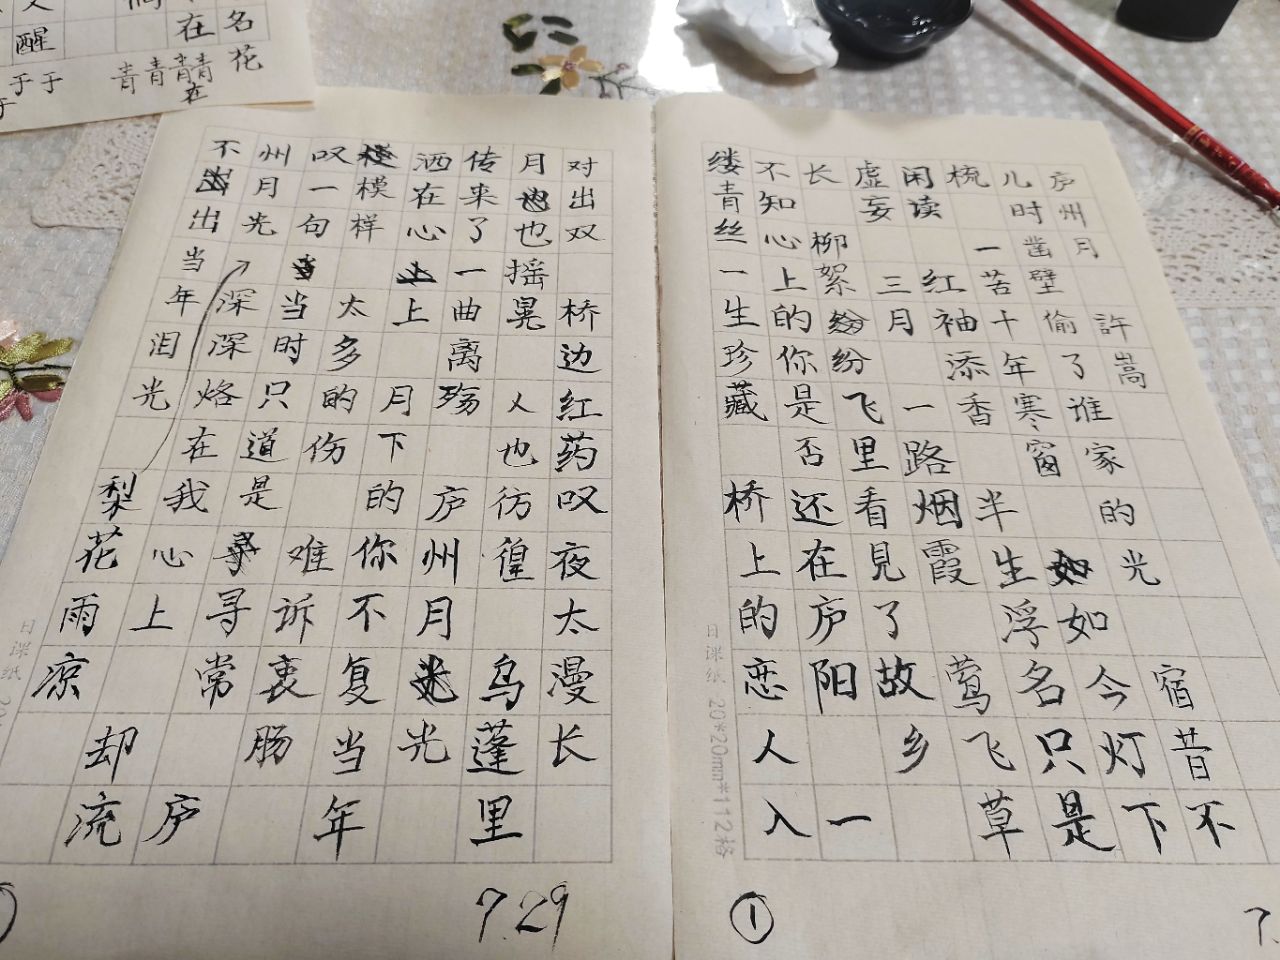 庐州月 許嵩
儿时凿壁偷了谁家的光 宿昔不
梳 一苦十年寒窗 如今灯下
闲读 红袖添香 半生浮名只是
虚妄 三月 一路烟霞 莺飞草
长 柳絮纷飞里看見了故乡
不知心上的你是否还在庐阳 一
缕青丝一生珍藏 桥上的恋人入
①
7.
日课纸 20*20mm*112格
对出双 桥边红药叹夜太漫长
月也摇晃 人也彷徨 乌蓬里
传来了一曲离殇 庐州月光
洒在心上 月下的你不复当年
模样 太多的伤 难诉衷肠
叹一句当时只道是寻常 庐
州月光 深深烙在我心上 却流
不出当年泪光 梨花雨凉
7.29
日课纸 20
名花
在
青青青青
在
醒
于于